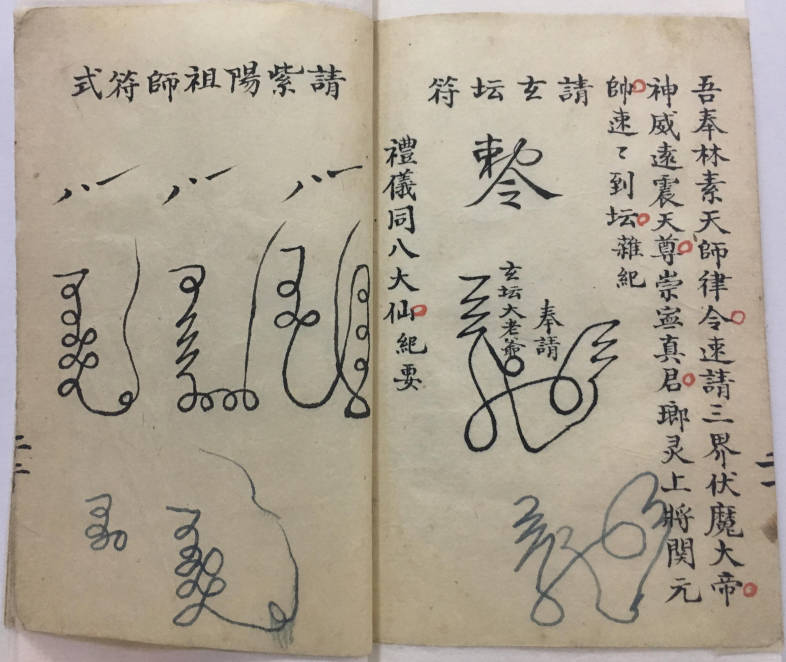 吾奉林素天師律令速請三界伏魔大帝
神威遠震天尊崇寍真君瑯灵上將関元
帥速〻到坛雜紀
請玄坛符
勅令
奉請
玄坛大老爺
禮儀同八大仙紀要
請紫陽祖師符式